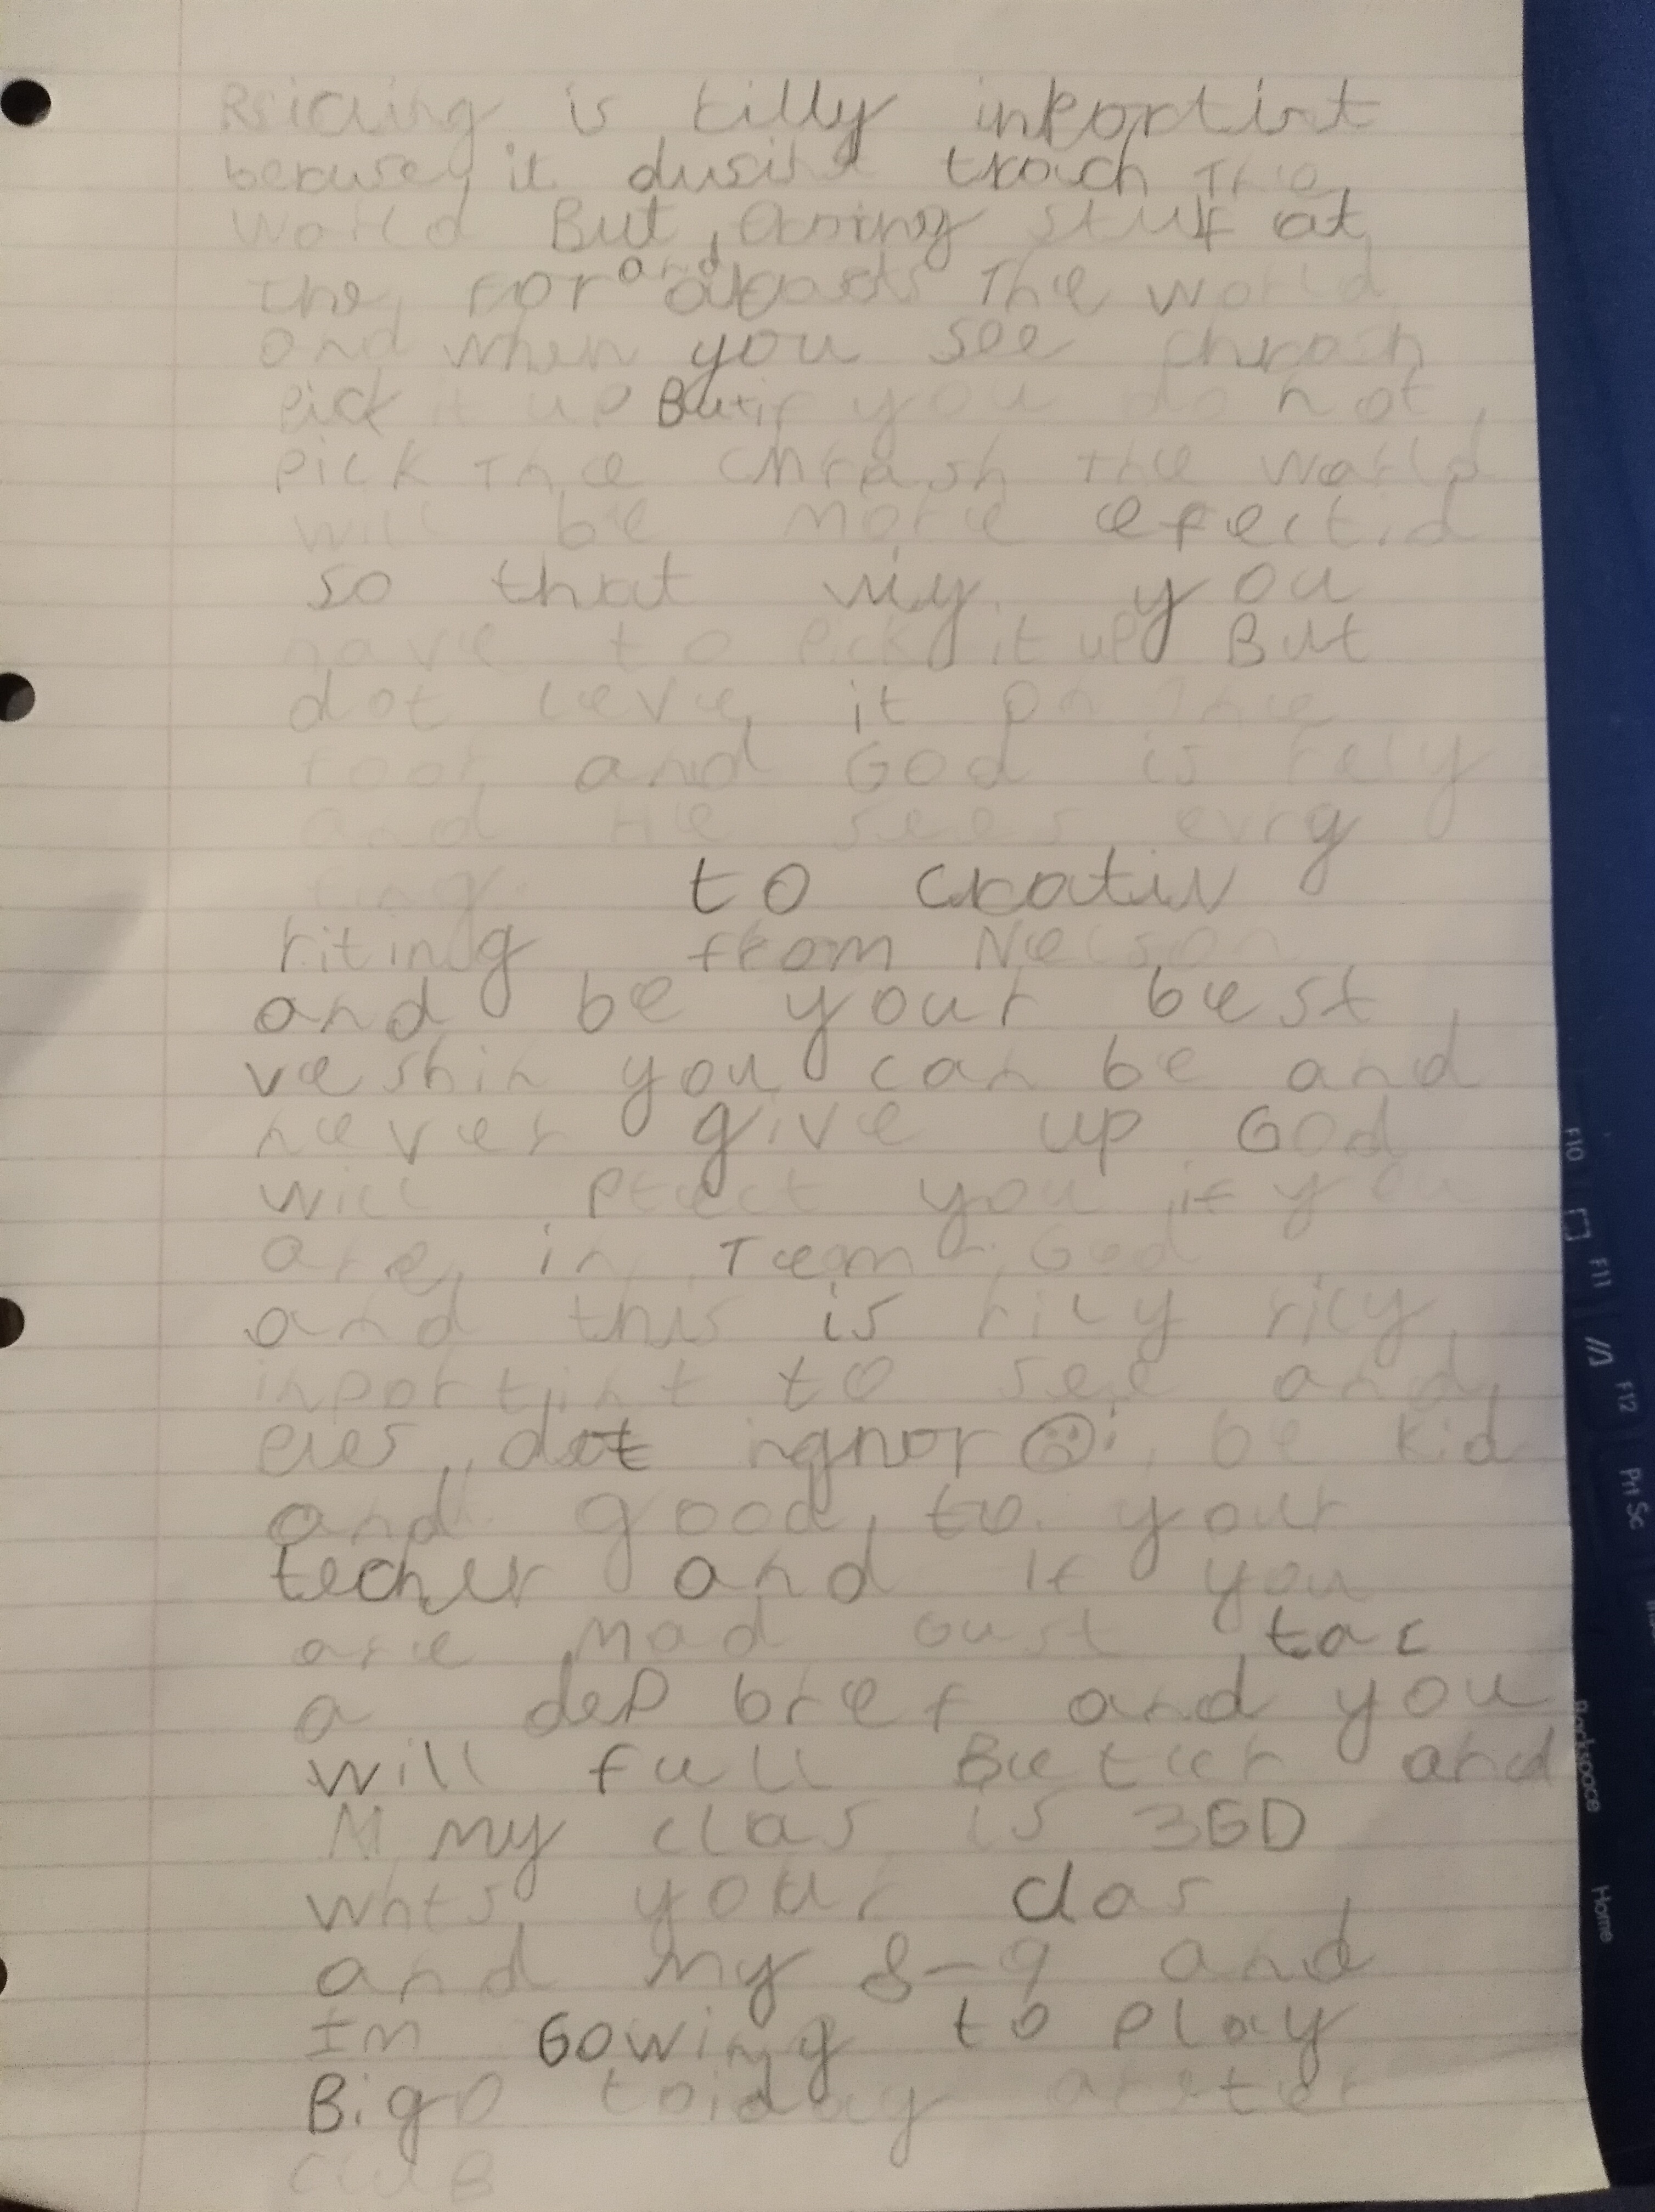 is tilly inportint
becuse it dusint trach The
World But stuf at
the For and The world
and when you see chrash
pick it up But if you do not
pick The chrash the world
will be more efectid
so that wiy you
have to pick it up But
dot leve it on The
foor and God is rely
and He sees evry
ting. to crativ
riting from Nelson
and be your best
veshin you can be and
never give up God
will ptect you if you
are in Team God
and this is rily rily
inportint to see and
dot ingnor be kid
and good to your
techer and if you
are mad Gust tac
a dep bref and you
will full Beter and
M my clas is 3GD
whts your clas
and my 8-9 and
Im Gowing to play
Bigo toiday arster
cluB
F10
F11
F12
Prt Sc
Backspace
Home